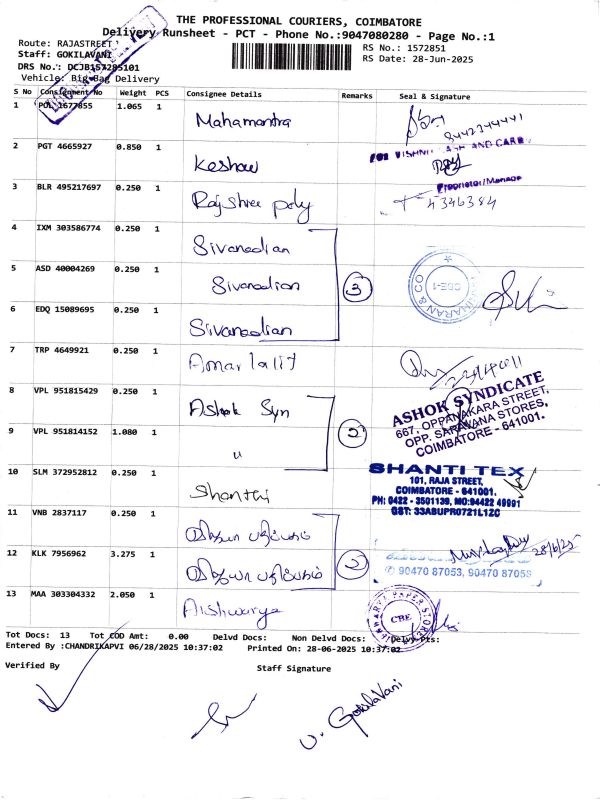 THE PROFESSIONAL COURIERS, COIMBATORE
Delivery Runsheet - PCT - Phone No.:9047080280 - Page No.:1
Route: RAJASTREET
Staff: GOKILAVANI
RS No.: 1572851
DRS No.: DCJB157285101
RS Date: 28-Jun-2025
Vehicle: Big Bag Delivery
S No Consignment No Weight PCS Consignee Details Remarks Seal & Signature
1 POL 1677855 1.065 1 Mahamantra
8442344441
2 PGT 4665927 0.850 1 Keshav
AND CARE
Proprietor/Manager
3 BLR 495217697 0.250 1 Rajshree poly
4346384
4 IXM 303586774 0.250 1 Sivanadian
5 ASD 40004269 0.250 1 Sivanadian 3
CBE-1
6 EDQ 15089695 0.250 1 Sivanadian
7 TRP 4649921 0.250 1 Amar lalit
8 VPL 951815429 0.250 1 Ashok Syn
ASHOK SYNDICATE
667, OPPANAKARA STREET,
OPP. SARAVANA STORES,
COIMBATORE - 641001.
9 VPL 951814152 1.080 1 " 2
10 SLM 372952812 0.250 1 Shanthi
SHANTI TEX
101, RAJA STREET,
COIMBATORE - 641001.
PH: 0422 - 3501139, MO:94422 49991
GST: 33ABUPR0721L1ZC
11 VNB 2837117 0.250 1 விஜயா பதிப்பகம்
28/6/25
12 KLK 7956962 3.275 1 விஜயா பதிப்பகம் 2
90470 87053, 90470 87059
13 MAA 303304332 2.050 1 Aishwarya
AISHWARYA PAPER STORE
CBE
Tot Docs: 13 Tot COD Amt: 0.00 Delvd Docs: Non Delvd Docs: Delvy Pts:
Entered By :CHANDRIKAPVI 06/28/2025 10:37:02 Printed On: 28-06-2025 10:37:02
Verified By Staff Signature
V. GokilaVani